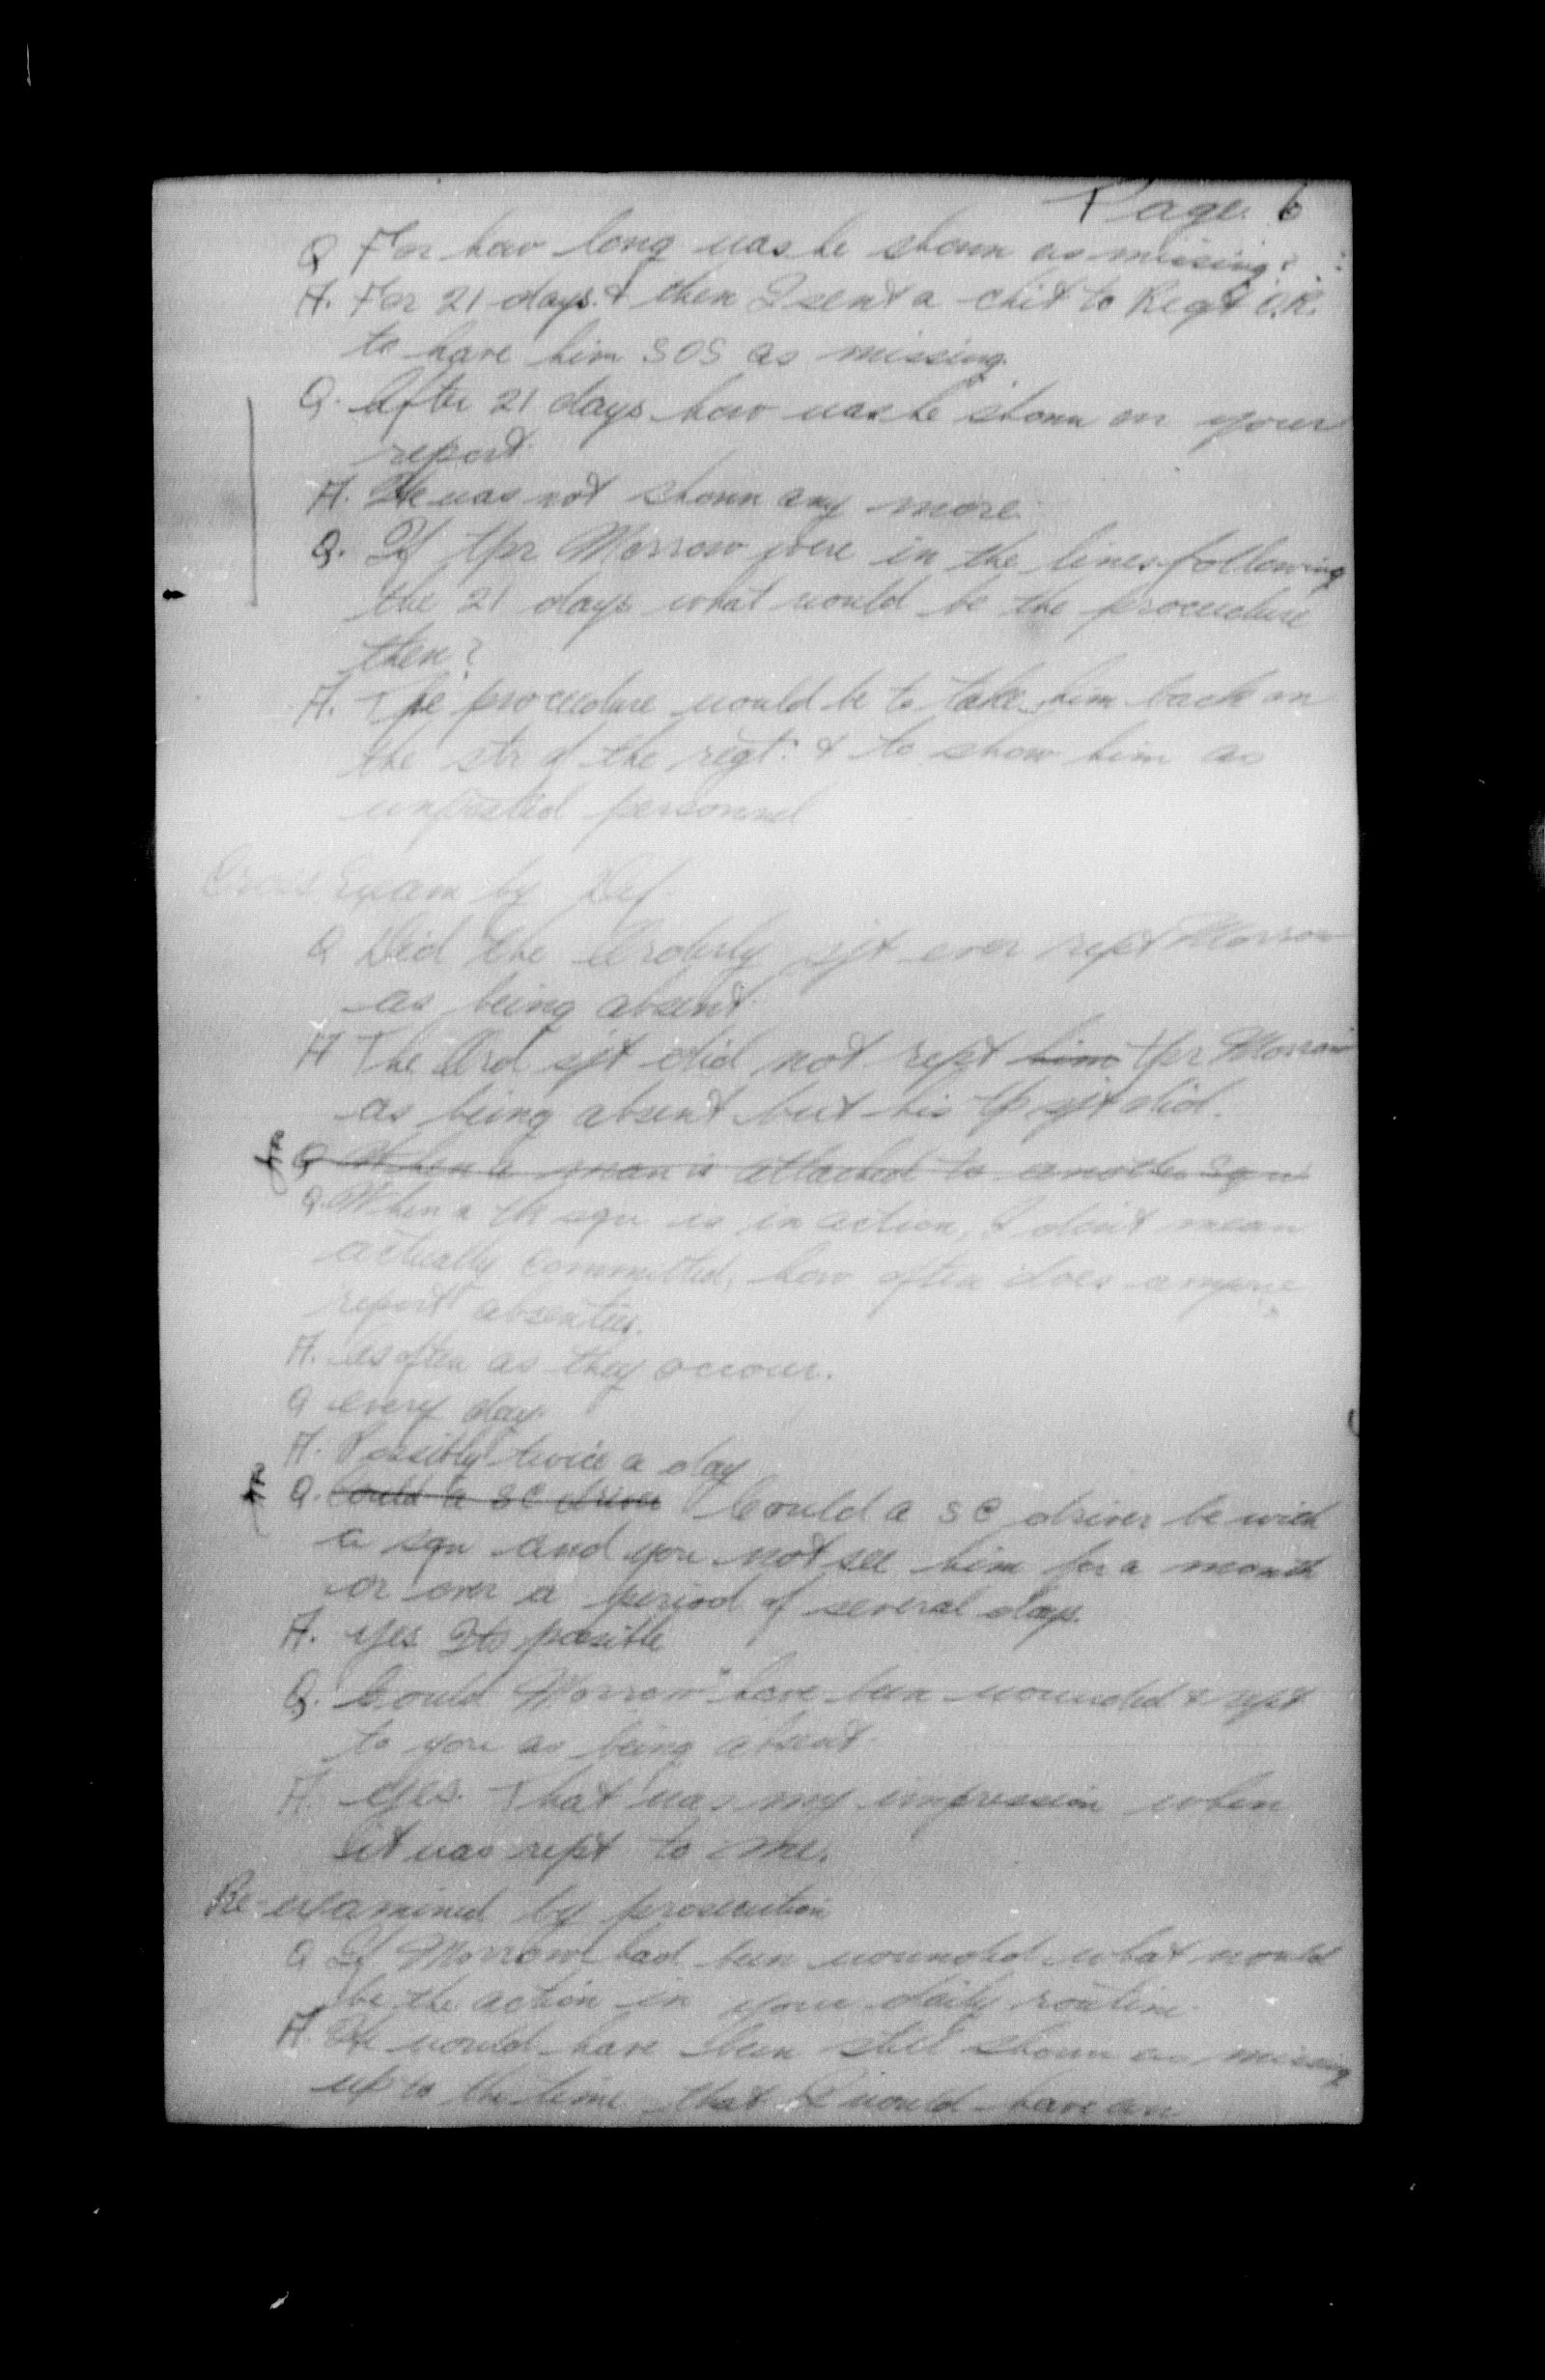 Page. 6
Q For how long was he shown as missing?
A. For 21 days & then I sent a chit to Regt O.R.
to have him SOS as missing.
Q. After 21 days how was he shown on your
report
A. He was not shown any more.
Q. If Tpr Morrow were in the lines following
the 21 days what would be the procedure
then?
A. The procedure would be to take him back on
the str of the regt. & to show him as
unposted personnel
Cross Exam by Def.
Q Did the Orderly sjt ever rept Morrow
as being absent
A The Ord sjt did not rept him Tpr Morrow
as being absent but his Tp sjt did.
Q When a man is attached to another sqn
Q. When a tk sqn is in action, I don't mean
actually committed, how often does anyone
report absentees.
A. as often as they occour.
Q every day.
A. Possibly twice a day
Q. Could a SC driver Could a SC driver be with
a sqn and you not see him for a month
or over a period of several days.
A. Yes Its possible
Q. Could Morrow have been wounded & rept
to you as being absent.
A. Yes. That was my impression when
it was rept to me.
Re-examined by prosecution
Q If Morrow had been wounded what would
be the action in your daily routine.
A. He would have been still shown as missing
up to the time that I would have an